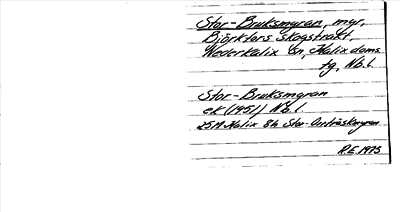 Stor-Bruksmyran, myr,
Björkfors skogstrakt,
Nederkalix sn, Kalix doms.
fg, Nb.l.
Stor-Bruksmyran
ek (1951) Nb.l.
25M Kalix 8h Stor-
R.E. 1975